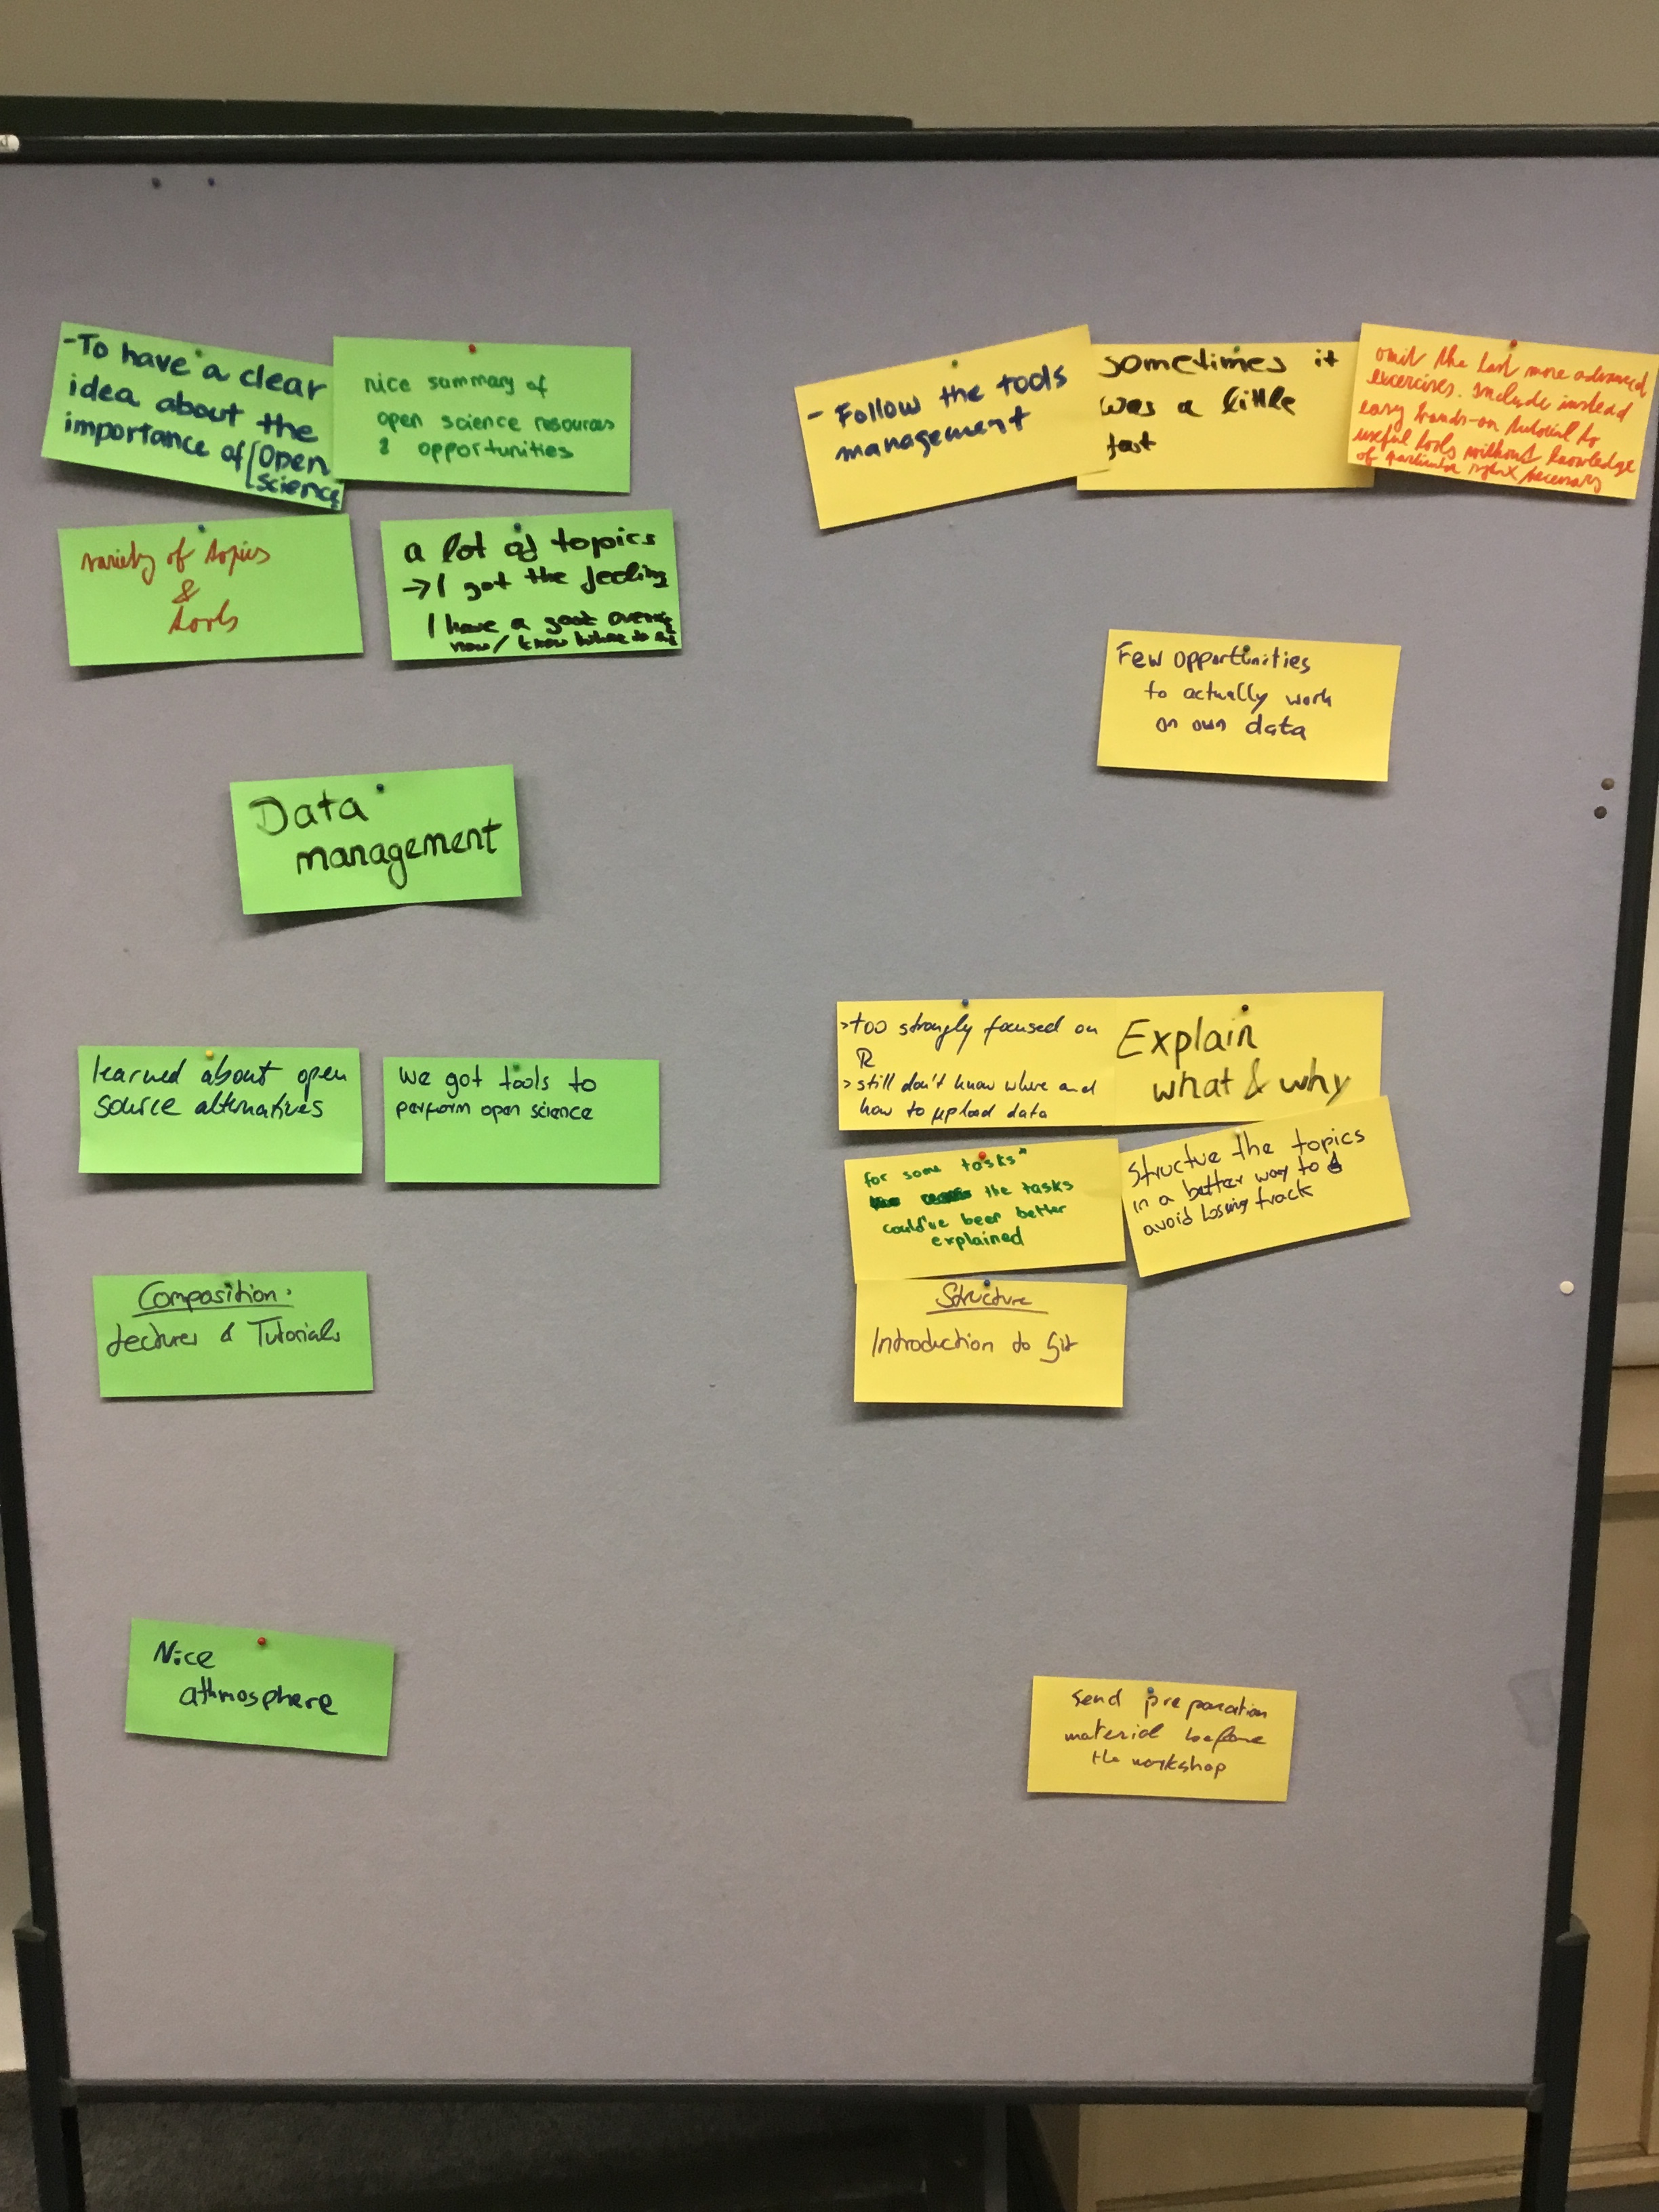 -To have a clear
idea about the
importance of Open
science
nice summary of
open science resources
& opportunities
variety of topics
&
tools
a lot of topics
→ I got the feeling
I have a good
now / know where to
Data
management
learned about open
source alternatives
we got tools to
perform open science
Composition:
Lectures & Tutorials
Nice
athmosphere
- Follow the tools
management
sometimes it
was a little
fast
omit the last more advanced
excercises. Include instead
easy hands-on tutorial to
useful tools without knowledge
of particular necessary
Few opportunities
to actually work
on own data
>too strongly focused on
R
> still don't know where and
how to upload data
Explain
what & why
for some tasks"
the tasks
could've been better
explained
Structue the topics
in a better way to
avoid losing track
Structure
Introduction to Git
send preparation
material before
the workshop